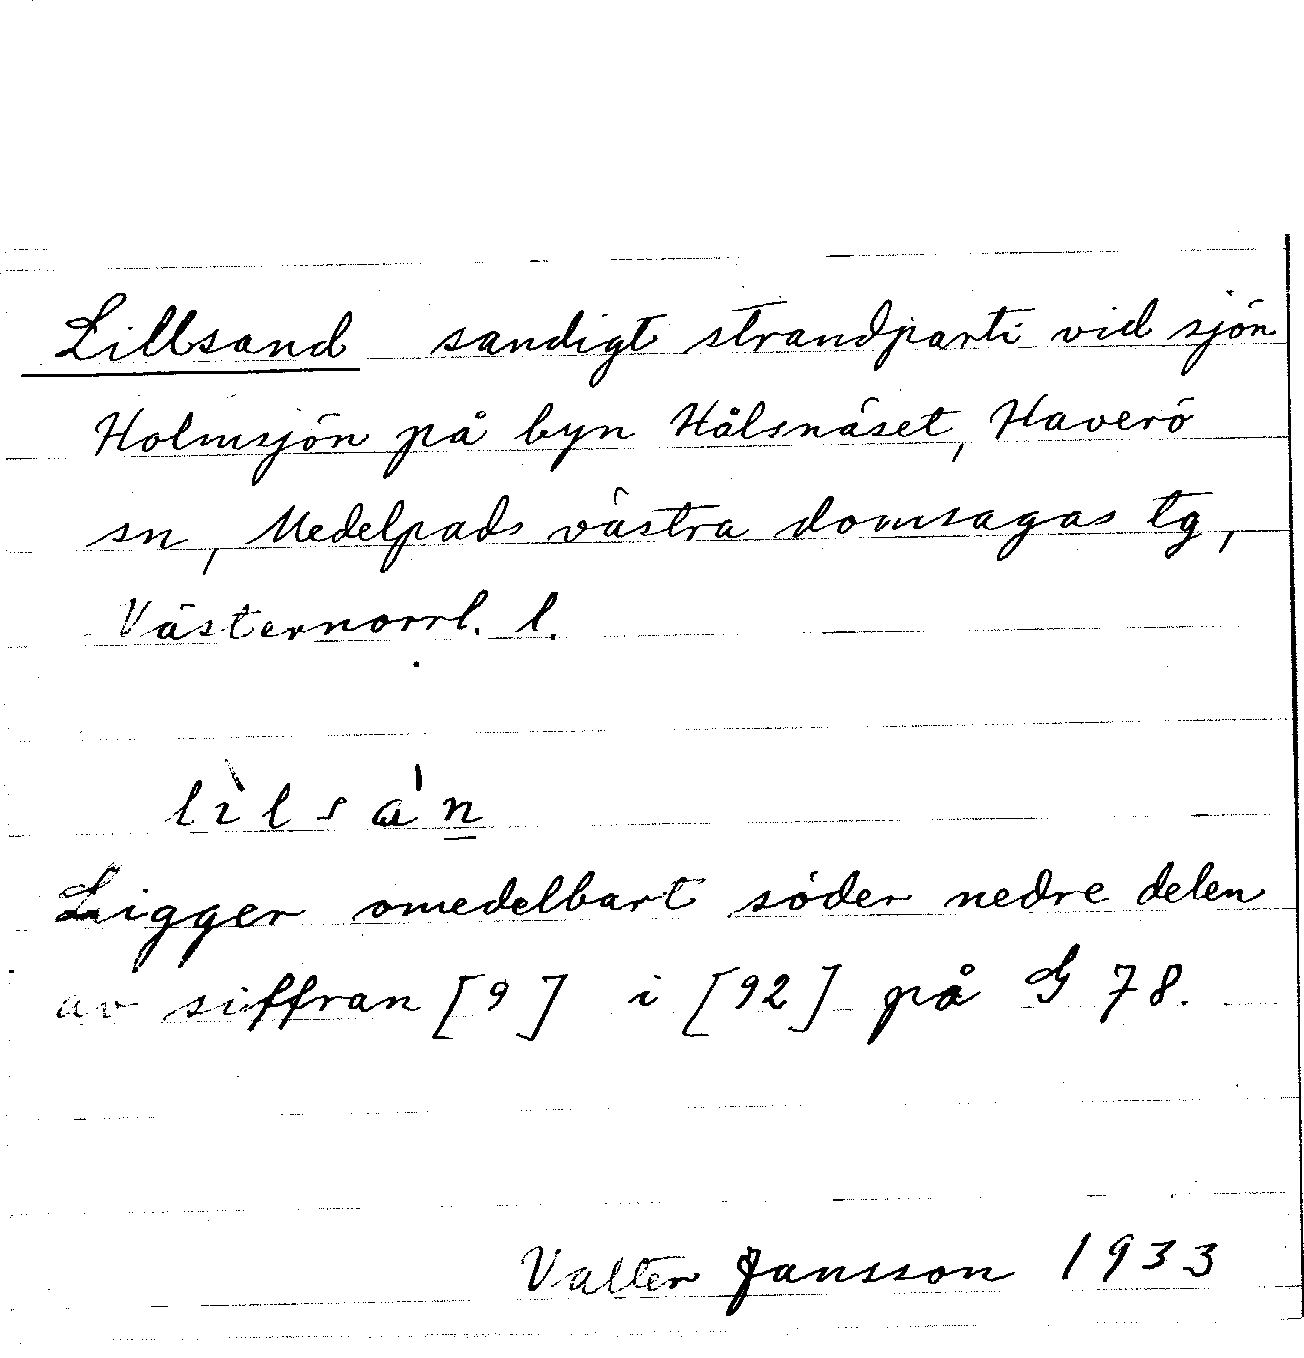 Lillsand sandigt strandparti vid sjön
Holmsjön på byn Hålsnäset, Haverö
sn, Medelpads västra domsagas tg,
Västernorrl. l.
lìlsán
Ligger omedelbart söder nedre delen
av siffran [9] i [92] på G 78.
Valter Jansson 1933